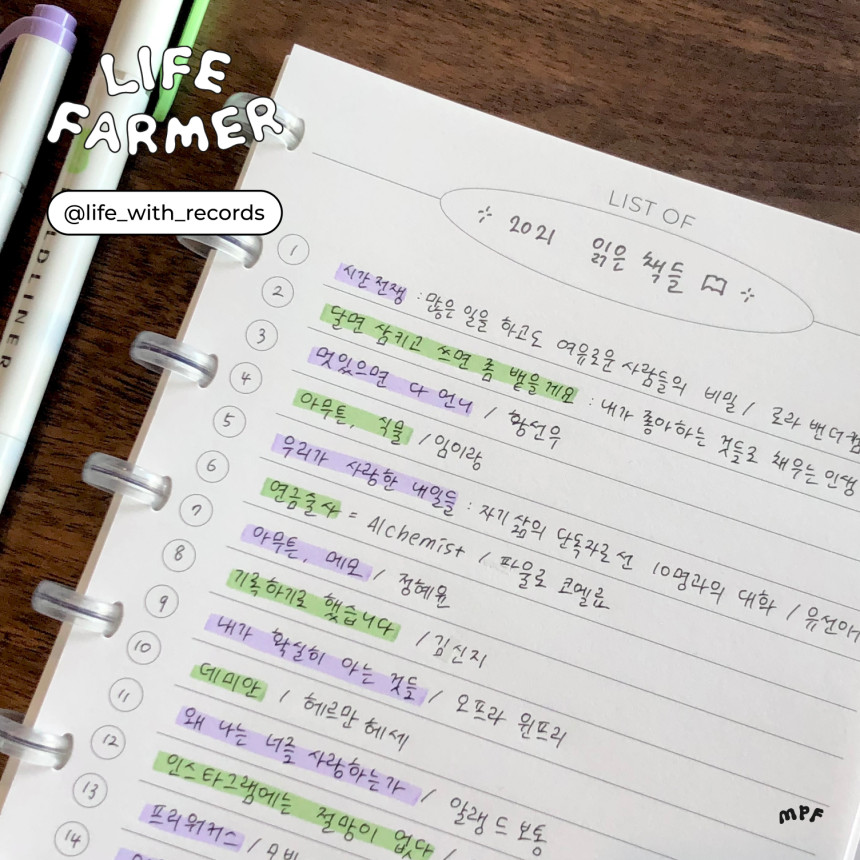 LIFE
FARMER
@life_with_records
LIST OF
2021 읽은 책들
1 시간전쟁 : 많은 일을 하고도 여유로운 사람들의 비밀 / 로라 밴더캠
2 달면 삼키고 쓰면 좀 뱉을게요 : 내가 좋아하는 것들로 채우는 인생
3 멋있으면 다 언니 / 황선우
4 아무튼, 식물 / 임이랑
5 우리가 사랑한 내일들 : 자기 삶의 단독자로 선 10명과의 대화 / 유선애
6 연금술사 = Alchemist / 파울로 코엘료
7 아무튼, 메모 / 정혜윤
8 기록하기로 했습니다 / 김신지
9 내가 확실히 아는 것들 / 오프라 윈프리
10 데미안 / 헤르만 헤세
11 왜 나는 너를 사랑하는가 / 알랭 드 보통
12 인스타그램에는 절망이 없다 /
13 프리워커스 /
14
MILDLINER
MPF